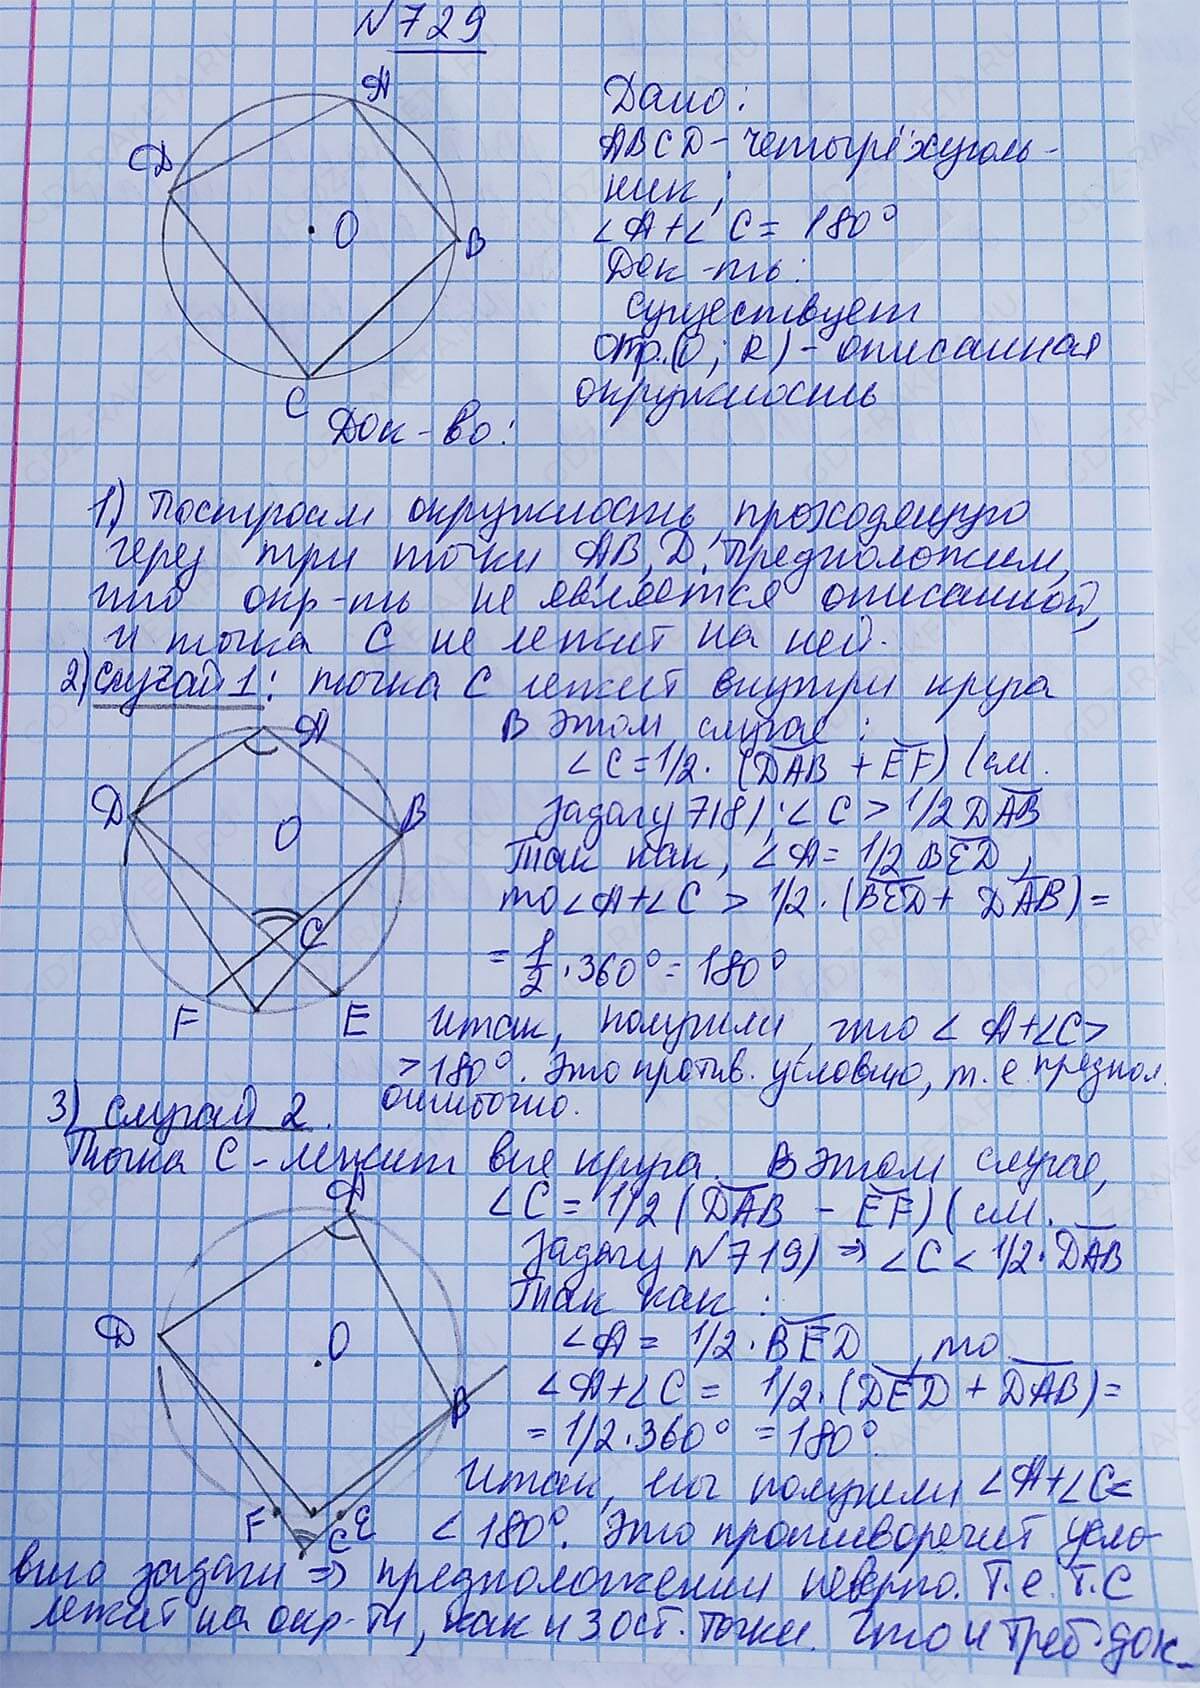 N729
A
D
O
B
C
Дано:
ABCD - четырёхуголь-
ник;
∠A+∠C = 180°
Док-ть:
существует
окр.(O; R) - описанная
окружность
Док-во:
1) Построим окружность, проходящую
через три точки A, B, D. Предположим,
что окр-ть не является описанной,
и точка C не лежит на ней.
2) Случай 1: точка C лежит внутри круга
A
D
O
B
C
F
E
В этом случае:
∠C = 1/2 · (DAB + EF) (см.
задачу 718); ∠C > 1/2 DAB
Так как, ∠A = 1/2 BED,
то ∠A+∠C > 1/2 · (BED + DAB) =
= 1/2 · 360° = 180°
Итак, получили, что ∠A+∠C >
> 180°. Это против. условию, т.е. предпол.
ошибочно.
3) Случай 2.
Точка C - лежит вне круга. В этом случае,
A
D
O
B
F
C
E
∠C = 1/2 (DAB - EF) (см.
задачу N719) ⇒ ∠C < 1/2 · DAB
Так как:
∠A = 1/2 · BED, то
∠A+∠C = 1/2 · (DED + DAB) =
= 1/2 · 360° = 180°.
Итак, мы получили ∠A+∠C =
< 180°. Это противоречит усло-
вию задачи ⇒ предположении неверно. Т.е. т. C
лежит на окр-ти, как и 3 ост. точки. Что и треб. док.